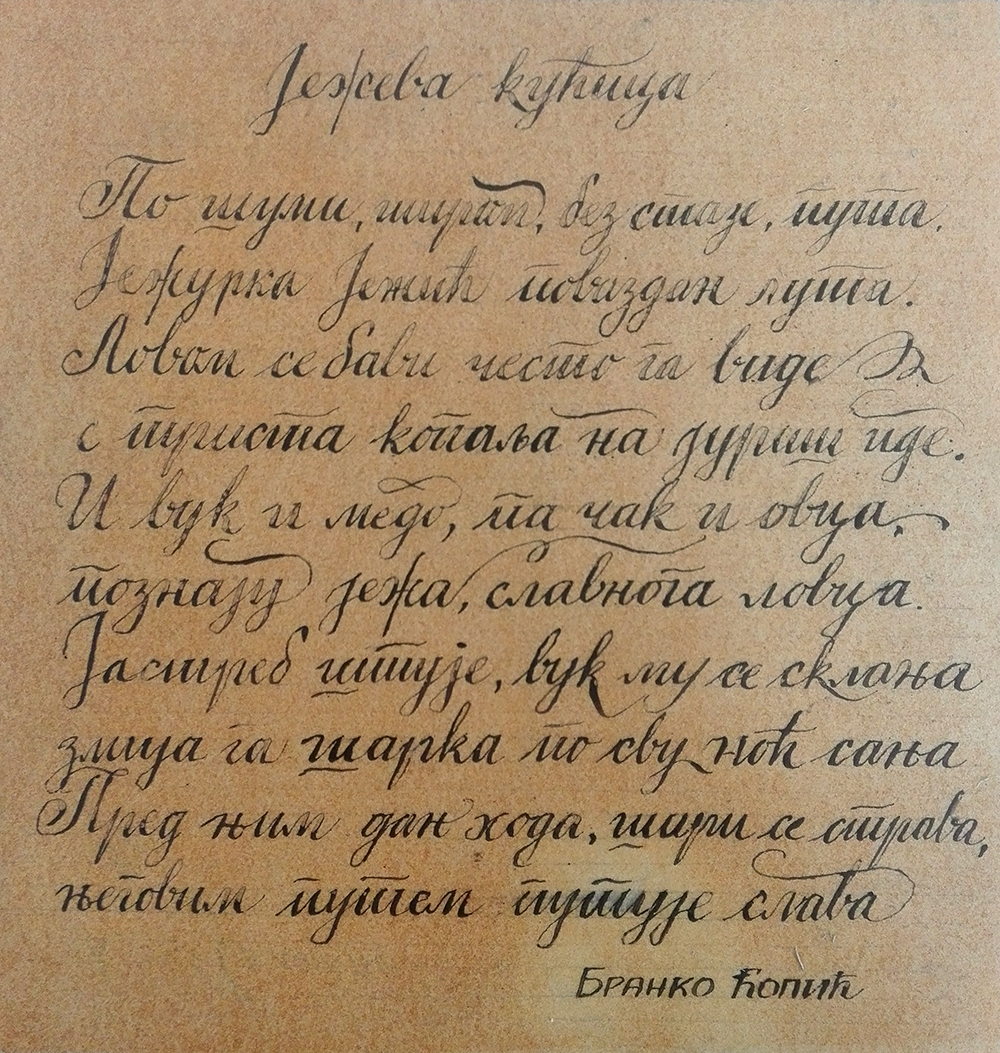 Јежева кућица
По шуми, широм, без стазе, пута.
Јежурка Јежић поваздан лута.
Ловом се бави често га виде
с тријста копаља на јуриш иде.
И вук и медо, па чак и овца,
познају јежа, славнога ловца.
Јастреб штује, вук му се склања
змија га шарка по сву ноћ сања
Пред њим дан хода, шири се страва,
његовим путем путује слава
Бранко Ћопић